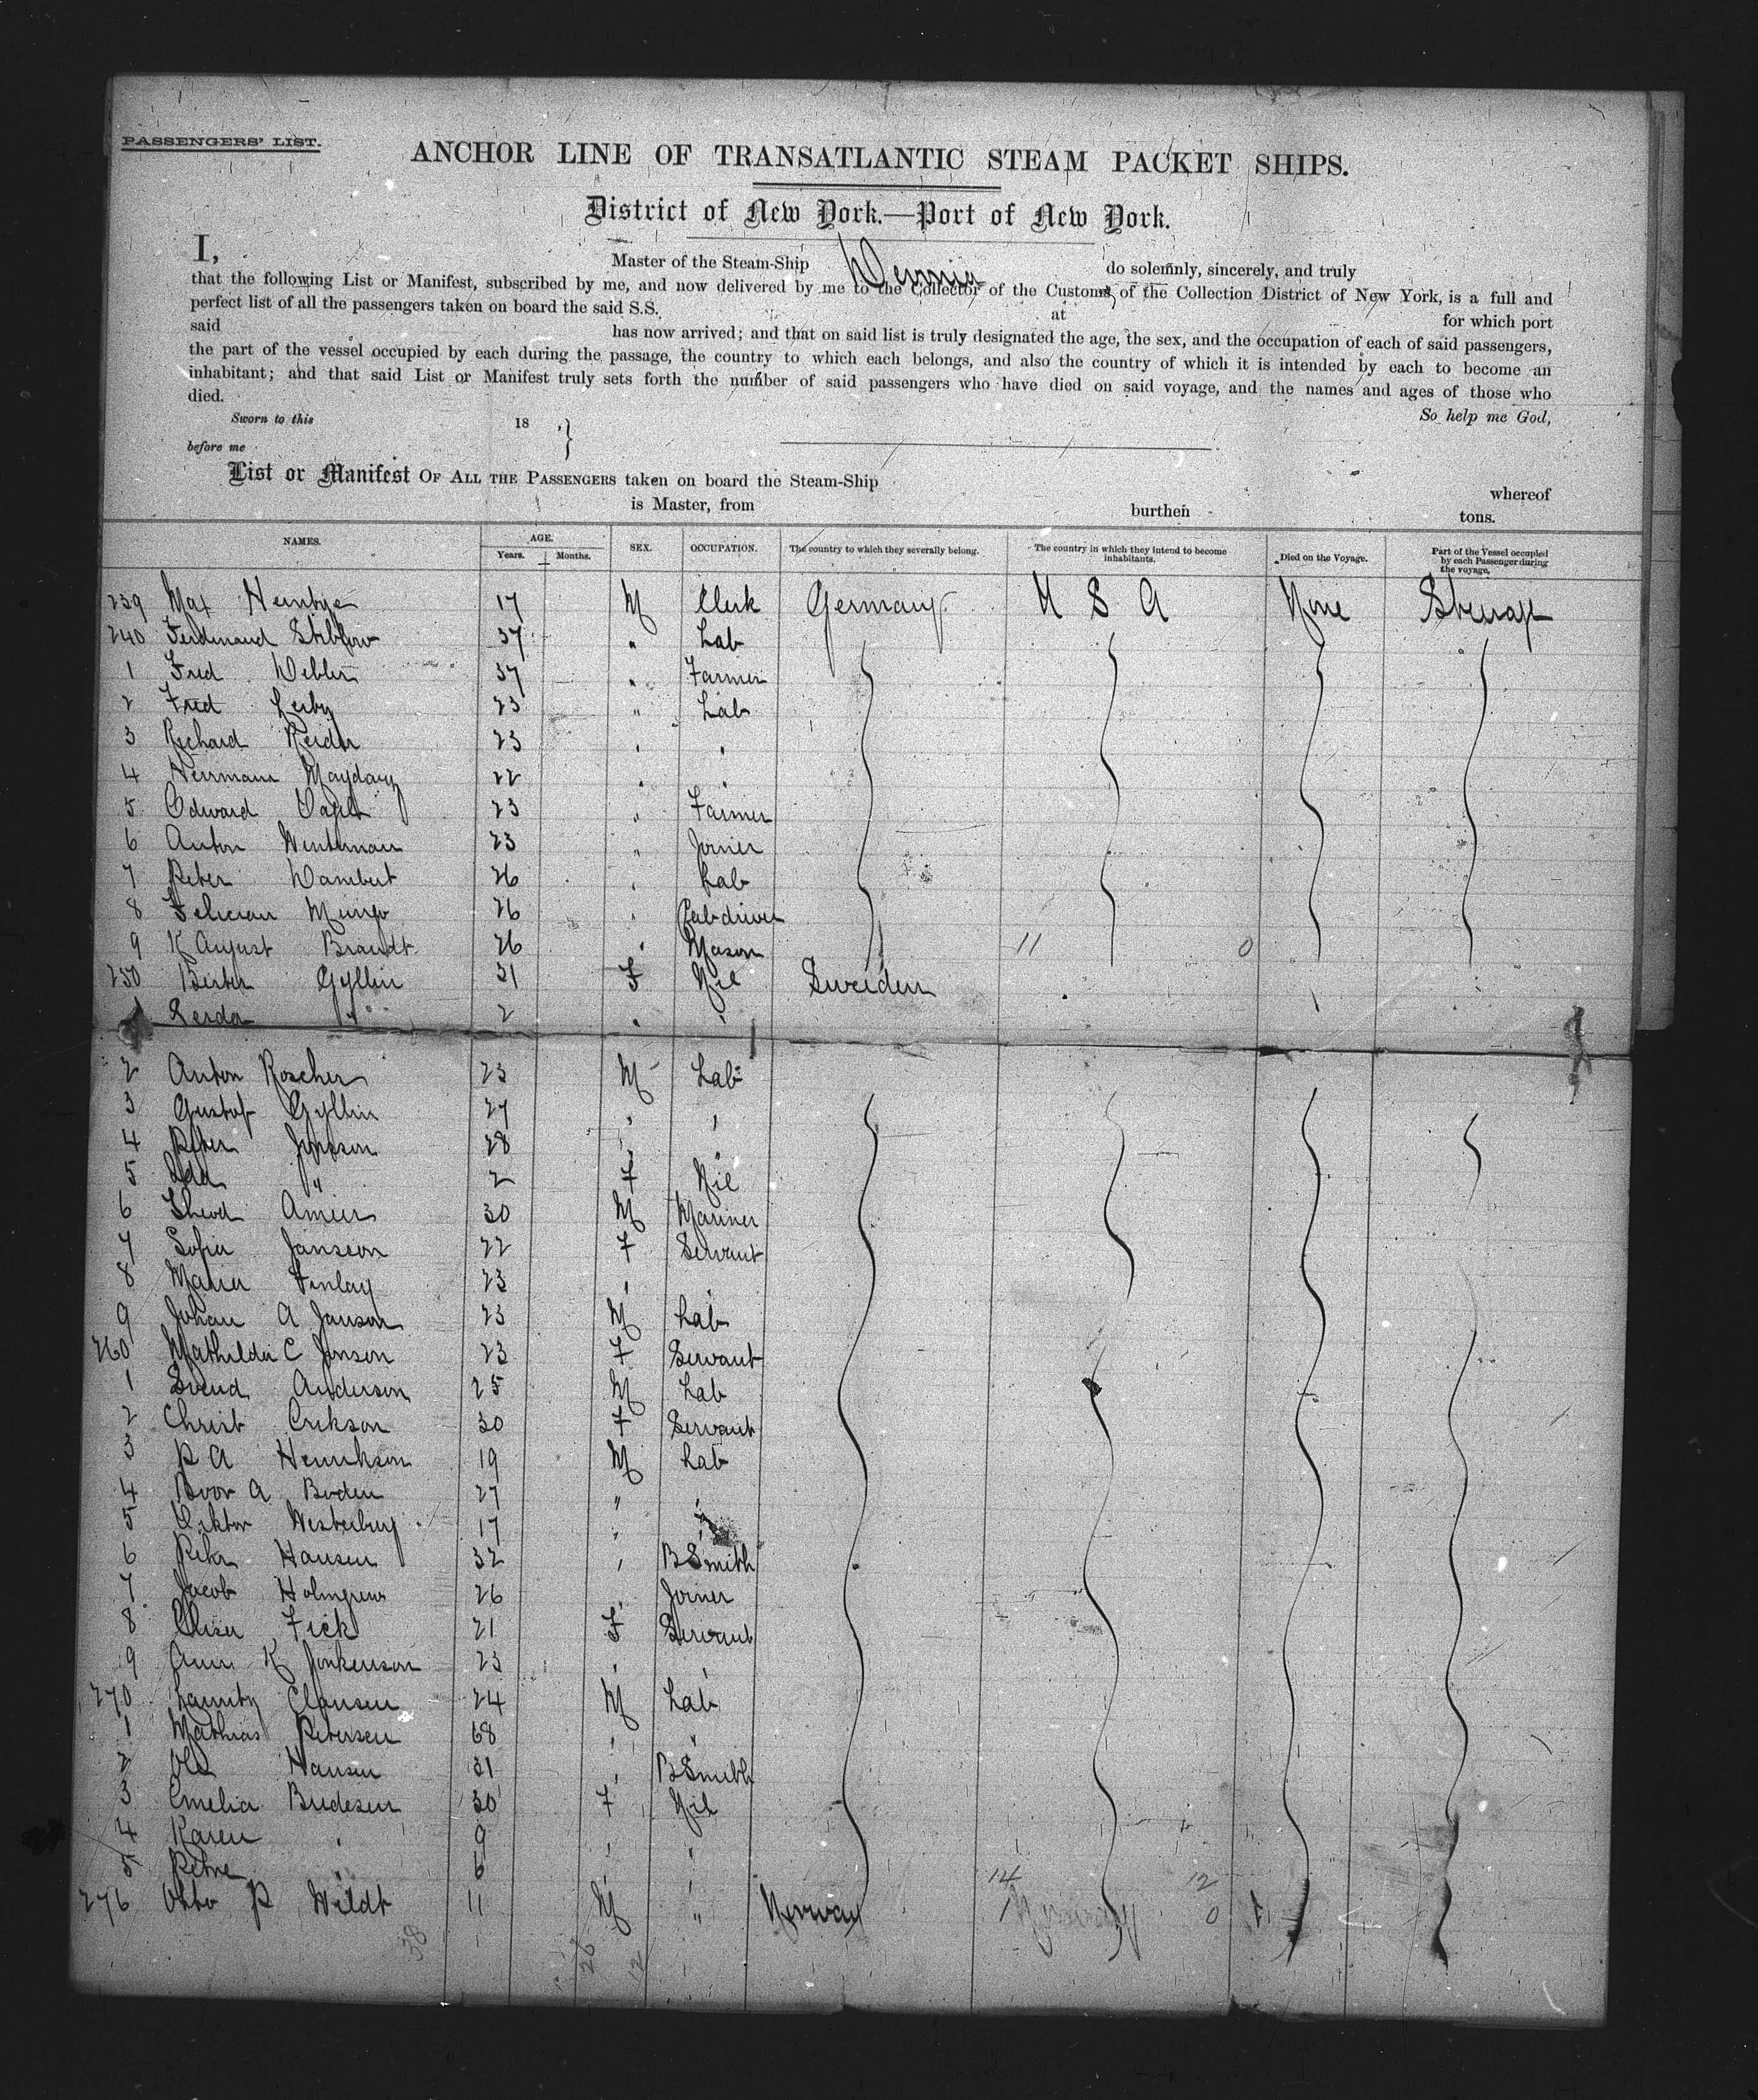 PASSENGERS' LIST.
ANCHOR LINE OF TRANSATLANTIC STEAM PACKET SHIPS.
District of New York.—Port of New York.
I, Master of the Steam-Ship do solemnly, sincerely, and truly
that the following List or Manifest, subscribed by me, and now delivered by me to the Collector of the Customs of the Collection District of New York, is a full and
perfect list of all the passengers taken on board the said S.S. at for which port
said has now arrived; and that on said list is truly designated the age, the sex, and the occupation of each of said passengers,
the part of the vessel occupied by each during the passage, the country to which each belongs, and also the country of which it is intended by each to become an
inhabitant; and that said List or Manifest truly sets forth the number of said passengers who have died on said voyage, and the names and ages of those who
died. So help me God,
Sworn to this 18
before me
List or Manifest OF ALL THE PASSENGERS taken on board the Steam-Ship whereof
is Master, from burthen tons.
NAMES. AGE. Years. Months. SEX. OCCUPATION. The country to which they severally belong. The country in which they intend to become inhabitants. Died on the Voyage. Part of the Vessel occupied by each Passenger during the voyage.
239 Max 17 M Clerk Germany U S A None Steerage
240 Ferdinand 37 " Lab
1 Fred 37 " Farmer
2 Fred 23 " Lab
3 Richard 23 " "
4 Herrmann 22 " "
5 Edward 23 " Farmer
6 Anton 23 " Joiner
7 Peter Wambert 26 " Lab
8 Felician 26 " Cabdriver
9 K August Brandt 26 " Mason 11 0
250 Gyllin 31 F Nil Sweden
Gerda " 2 " "
2 Anton Roscher 23 M Lab
3 Gustaf Gyllin 27 " "
4 Peter Jonsson 28 " "
5 Ida " 2 F Nil
6 30 M Mariner
7 Sofia Jansson 22 F Servant
8 Maria Finlay 23 " "
9 Johan A Janson 23 M Lab
260 Mathilda C Jonson 23 F Servant
1 Svend Anderson 25 M Lab
2 Christ Erikson 30 F Servant
3 P A Henrikson 19 M Lab
4 A Boden 27 " "
5 Viktor Westerburg 17 " "
6 Peter Hansen 32 " B Smith
7 Jacob Holmgren 26 " Joiner
8 Elisa Fick 21 F Servant
9 K 23 " "
270 Clausen 24 M Lab
1 Mathias Petersen 68 " "
2 Ole Hansen 31 " B Smith
3 Emelia 30 F Nil
4 Karen " 9 " "
5 " 6 " "
276 Otto P Wildt 11 M " Norway 14 12 0
38 26 12